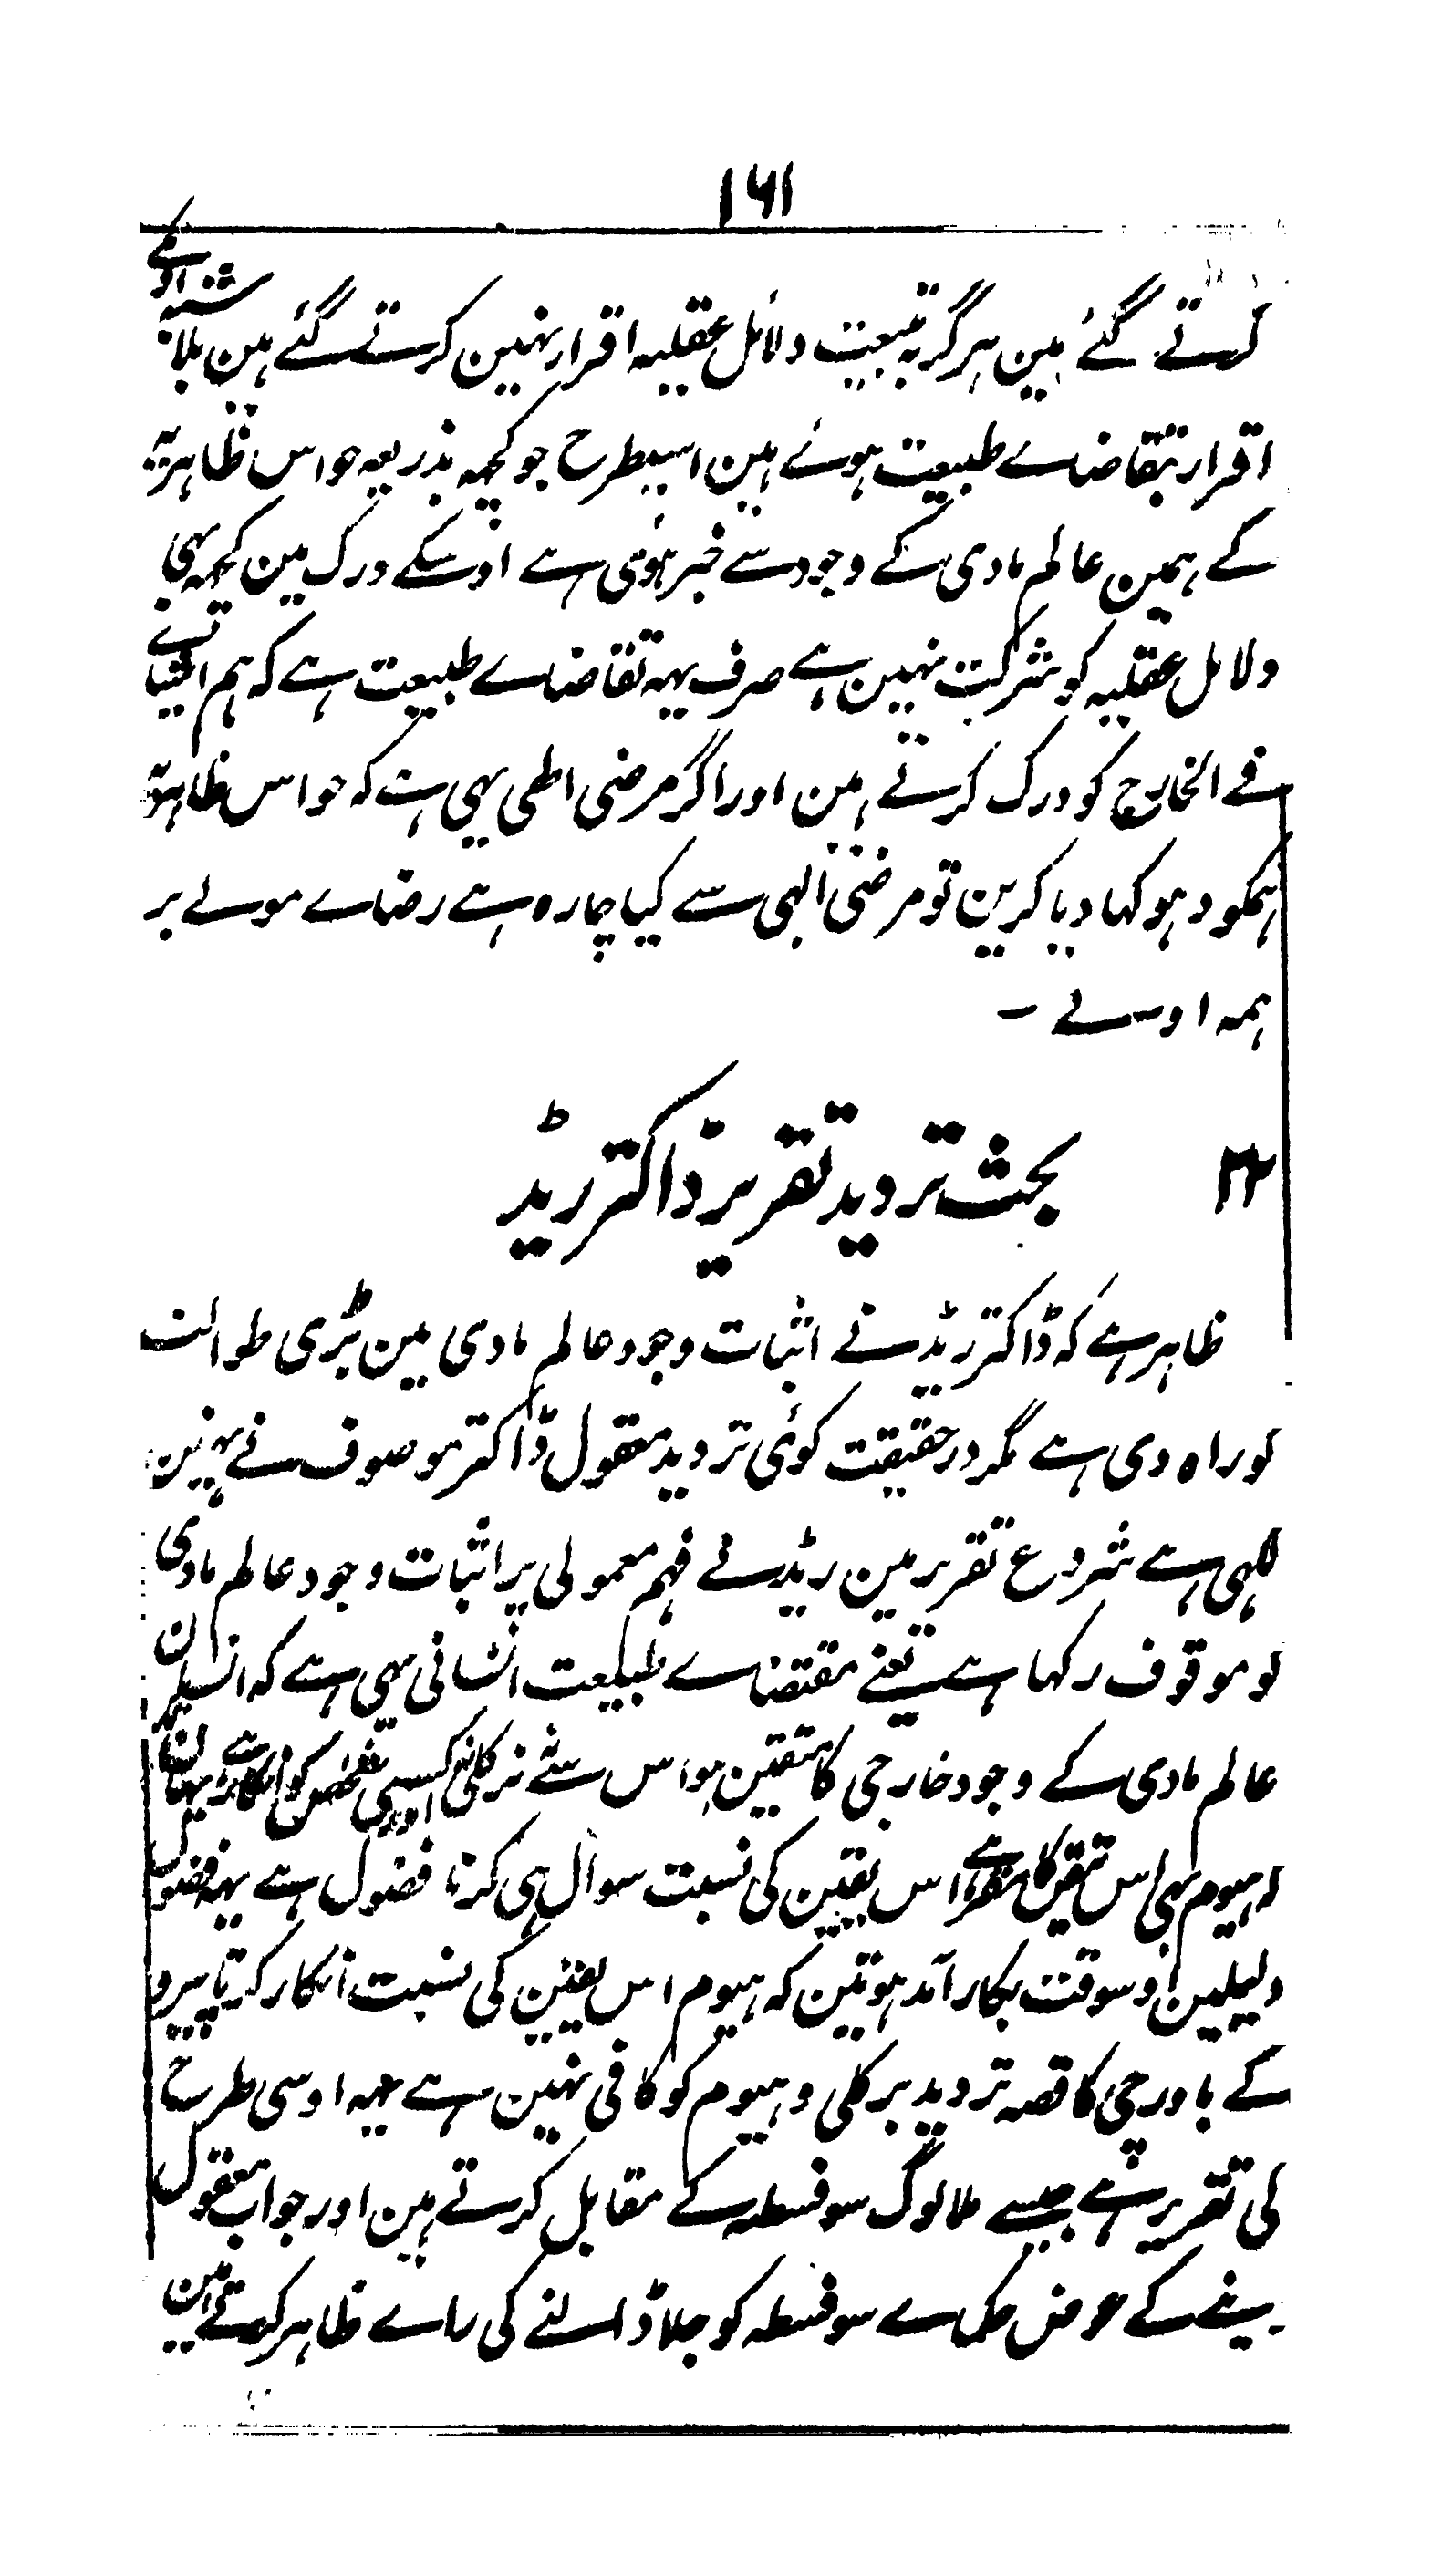 ۱۶۱
کرتے گئے ہین ہرگز بہ تبعیت دلائل عقلیہ اقرار نہین کرتے گئے ہین بلاشبہ اونکے
اقرار بتقاضاے طبیعت ہوئے ہین اسیطرح جو کچہہ بذریعہ حواس ظاہریہ
کے ہمین عالم مادی کے وجود سے خبر ہوئی ہے اوسکے درک مین کچہہ بھی
دلائل عقلیہ کو شرکت نہین ہے صرف یہہ تقاضاے طبیعت ہے کہ ہم اشیاے
فے الخارج کو درک کرتے ہین اور اگر مرضی الہی یہی ہے کہ حواس ظاہریہ
ہمکو دہوکہا دیا کرین تو مرضی الہی سے کیا چارہ ہے رضاے مولے بر
ہمہ اولے -
۲۲ بحث تردید تقریر ڈاکتر رڈ
ظاہر ہے کہ ڈاکتر ریڈ نے اثبات وجود عالم مادی مین بڑی طوالت
کو راہ دی ہے مگر در حقیقت کوئی تردید معقول ڈاکتر موصوف نے نہین
لکہی ہے شروع تقریر مین ریڈ نے فہم معمولی پر اثبات وجود عالم مادی
کو موقوف رکہا ہے یعنے مقتضاے طبیعت انسانی یہی ہے کہ انسان
عالم مادی کے وجود خارجی کا متیقن ہو اس سے نہ برکلی اور کسی شخص کو انکار ہے یہان
کہ ہیوم بھی اس تیقن کا مقر ہے اس یقین کی نسبت سوال ہی کرنا فضول ہے یہہ فضول
دلیلین اوسوقت بکار آمد ہوتین کہ ہیوم اس یقین کی نسبت انکار کرتا پیرو
کے باورچی کا قصہ تردید برکلی و ہیوم کو کافی نہین ہے یہہ اوسی طرح
کی تقریر ہے جیسے ملا لوگ سوفسطہ کے مقابل کرتے ہین اور جواب معقول
دینے کے عوض حکماے سوفسطہ کو جلا ڈالنے کی راے ظاہر کرتے ہین